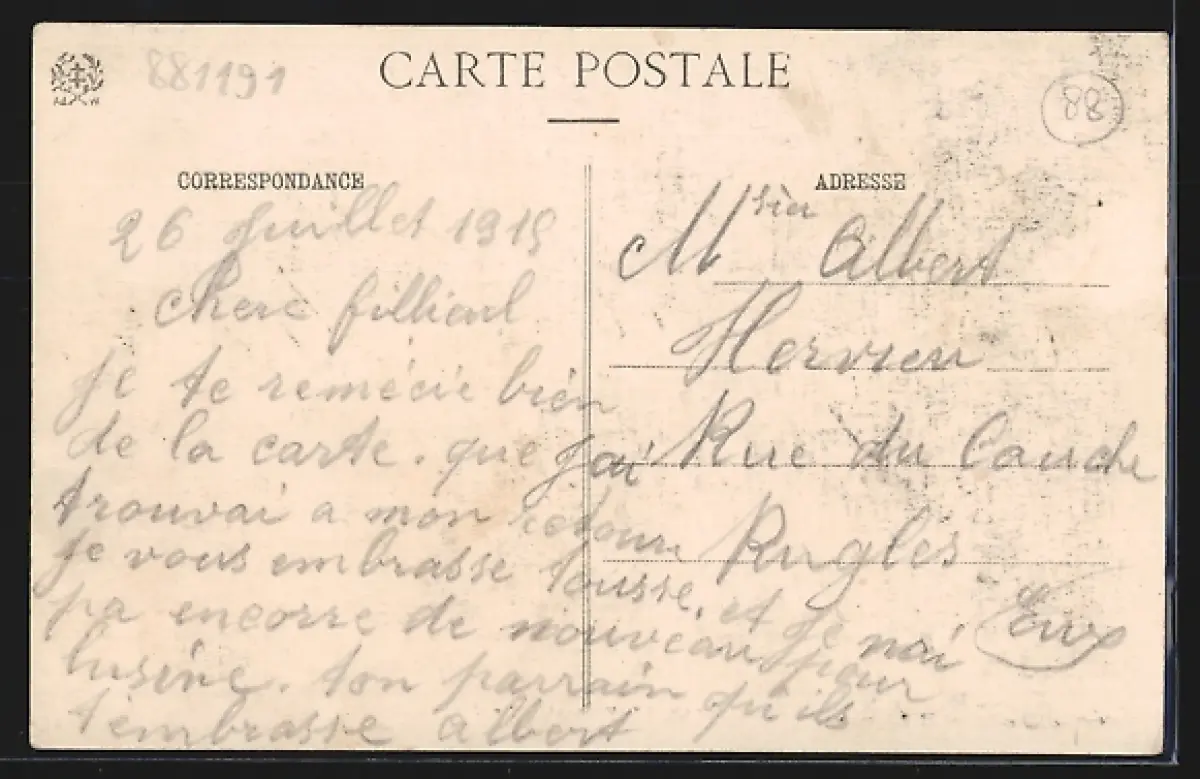 881191
CARTE POSTALE
88
CORRESPONDANCE
26 Juillet 1915
chere fillieul
je te remécie bien
de la carte. que j'ai
trouvai a mon retour
je vous embrasse tousse. et je nai
pa encorre de nouveau pour
lusine. ton parrain qu'ils
t'embrasse albert
ADRESSE
Msieu Albert
Hervieu
Rue du Couche
Rugles
Eure